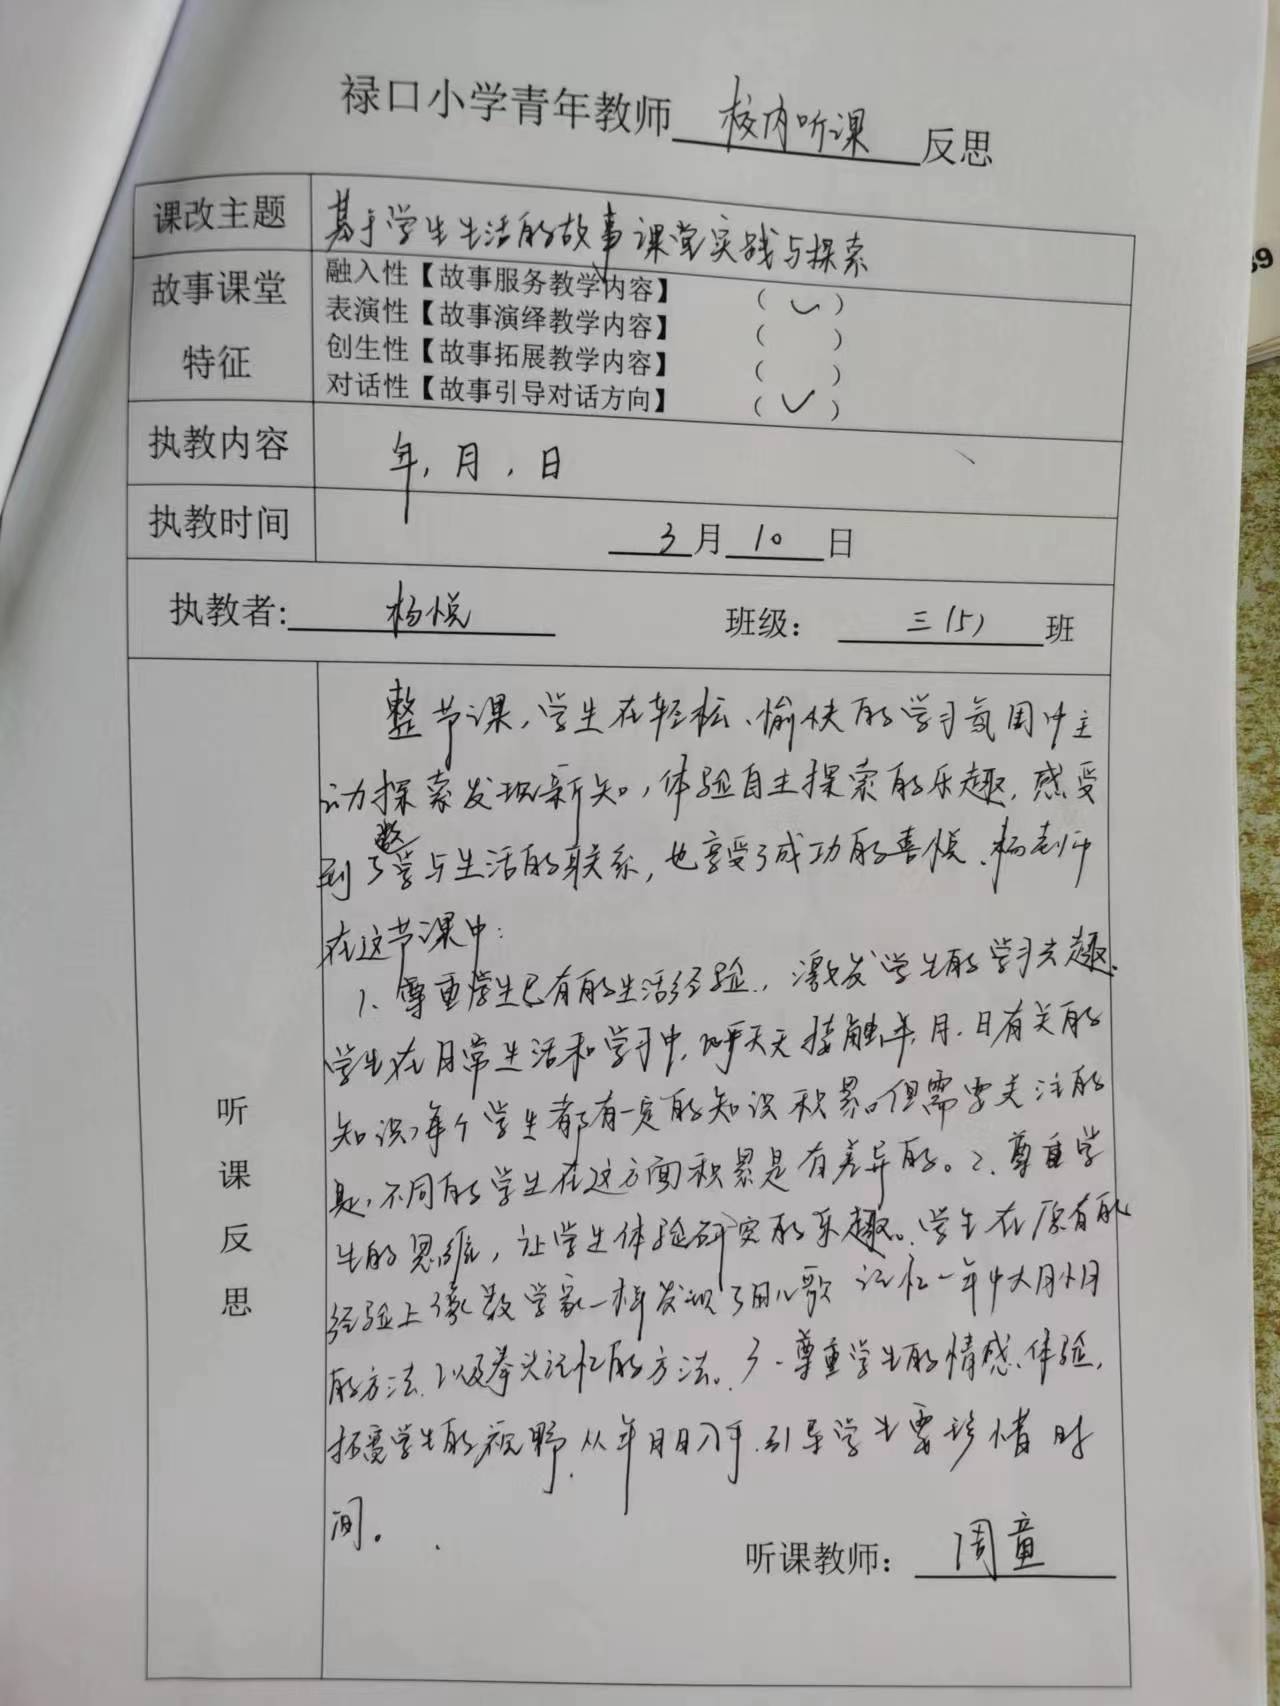 禄口小学青年教师 校内听课 反思
39
课改主题 基于学生生活的故事课堂实践与探索
故事课堂特征
融入性【故事服务教学内容】 （✓）
表演性【故事演绎教学内容】 （ ）
创生性【故事拓展教学内容】 （ ）
对话性【故事引导对话方向】 （✓）
执教内容 年、月、日
执教时间 3月10日
执教者: 杨悦 班级： 三（5） 班
听课反思
整节课，学生在轻松、愉快的学习氛围中主
动探索发现新知，体验自主探索的乐趣，感受
到了数学与生活的联系，也享受了成功的喜悦。杨老师
在这节课中：
1、尊重学生已有的生活经验，激发学生的学习兴趣。
学生在日常生活和学习中，几乎天天接触年、月、日有关的
知识，每个学生都有一定的知识积累。但需要关注的
是，不同的学生在这方面积累是有差异的。2、尊重学
生的思维，让学生体验研究的乐趣。学生在原有的
经验上像数学家一样发现了用儿歌记忆一年中大月小月
的方法，以及拳头记忆的方法。3、尊重学生的情感、体验，
拓宽学生的视野，从年月日入手，引导学生要珍惜时
间。
听课教师： 周童